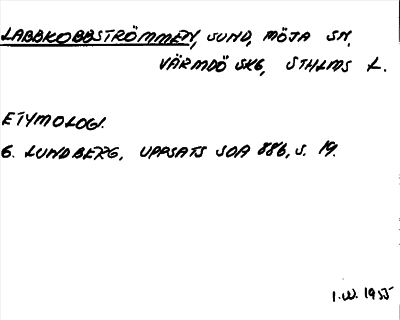 LABBKOBBSTRÖMMEN, SUND, MÖJA SN,
VÄRMDÖ SKG, STHLMS L.
ETYMOLOGI.
G. LUNDBERG, UPPSATS SOA 886, S. 19.
1955